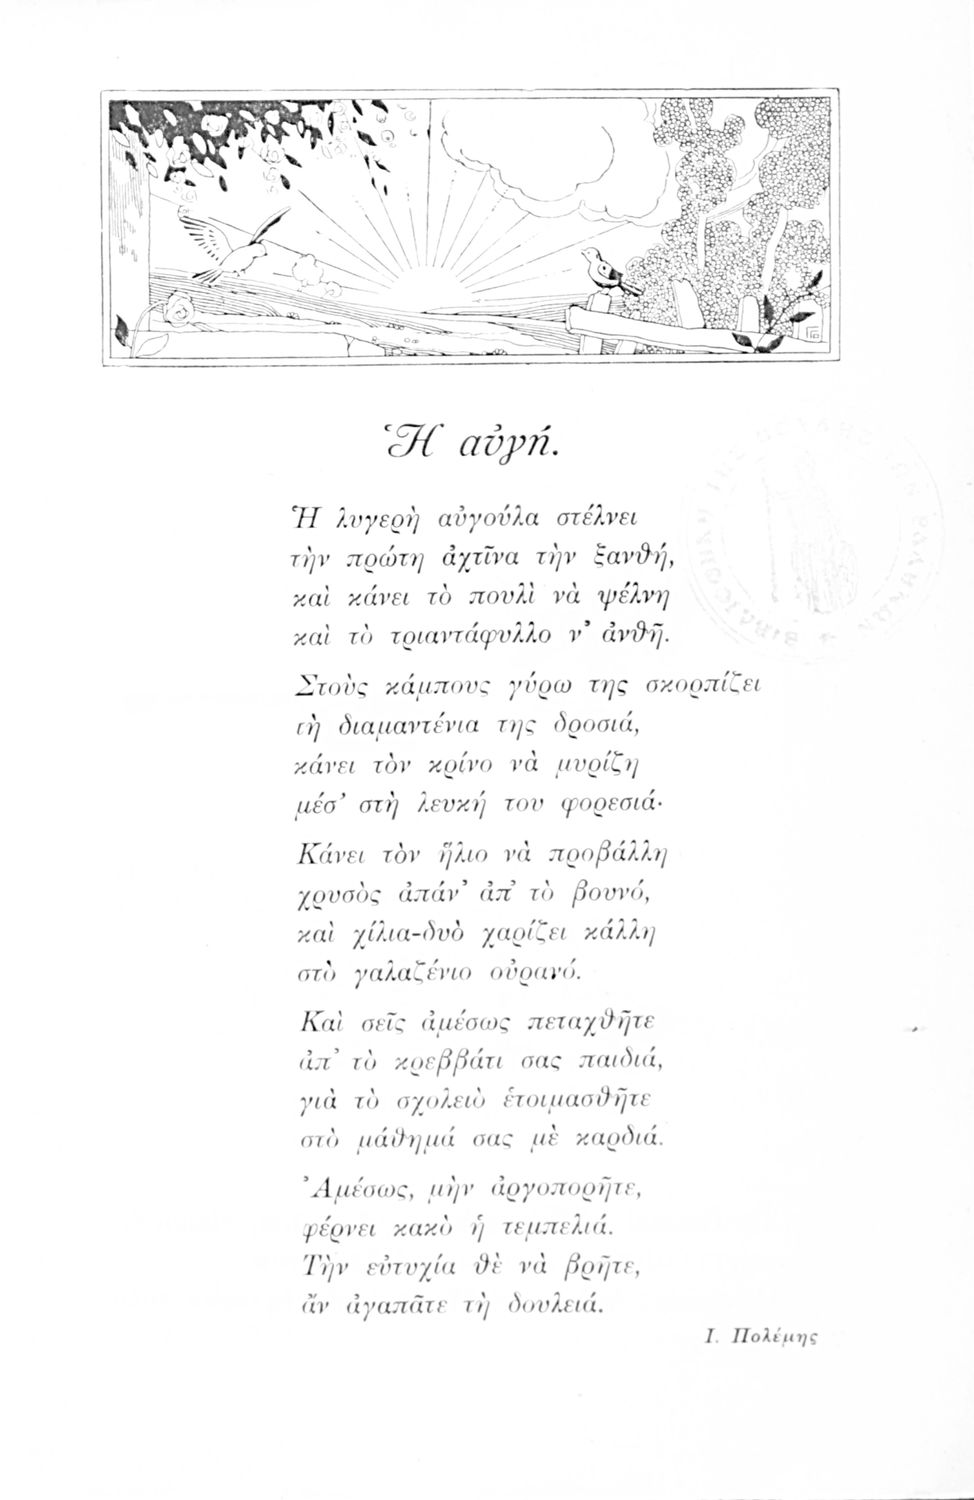 Ἡ αὐγή.
Ἡ λυγερὴ αὐγούλα στέλνει
τὴν πρώτη ἀχτῖνα τὴν ξανθή,
καὶ κάνει τὸ πουλὶ νὰ ψέλνη
καὶ τὸ τριαντάφυλλο ν' ἀνθῆ.
Στοὺς κάμπους γύρω της σκορπίζει
τὴ διαμαντένια της δροσιά,
κάνει τὸν κρίνο νὰ μυρίζη
μέσ' στὴ λευκή του φορεσιά·
Κάνει τὸν ἥλιο νὰ προβάλλη
χρυσὸς ἀπάν' ἀπ' τὸ βουνό,
καὶ χίλια-δυὸ χαρίζει κάλλη
στὸ γαλαζένιο οὐρανό.
Καὶ σεῖς ἀμέσως πεταχθῆτε
ἀπ' τὸ κρεββάτι σας παιδιά,
γιὰ τὸ σχολειὸ ἑτοιμασθῆτε
στὸ μάθημά σας μὲ καρδιά.
Ἀμέσως, μὴν ἀργοπορῆτε,
φέρνει κακὸ ἡ τεμπελιά.
Τὴν εὐτυχία θὲ νὰ βρῆτε,
ἂν ἀγαπᾶτε τὴ δουλειά.
Ι. Πολέμης